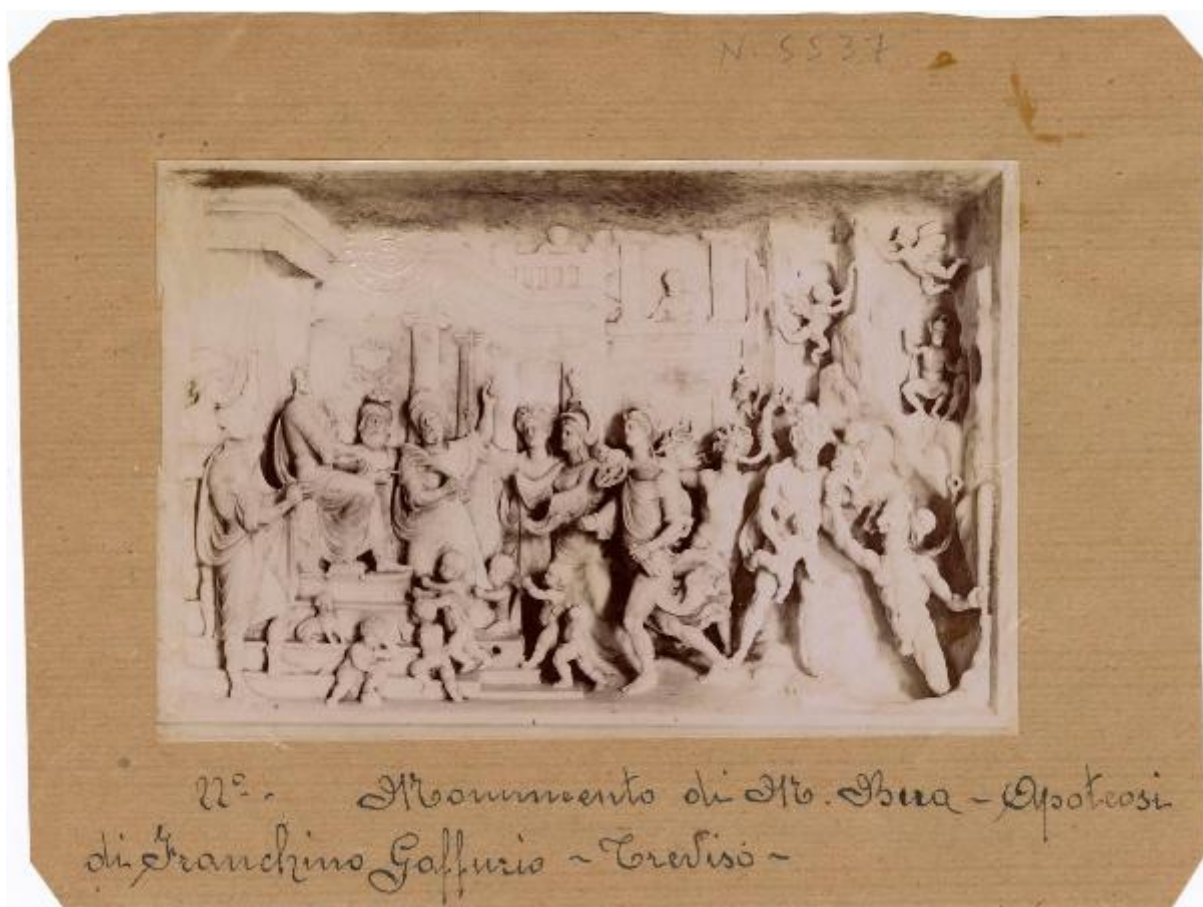 N. 5537
22º. Monumento di M. Bua - Apoteosi
di Franchino Gaffurio - Treviso -